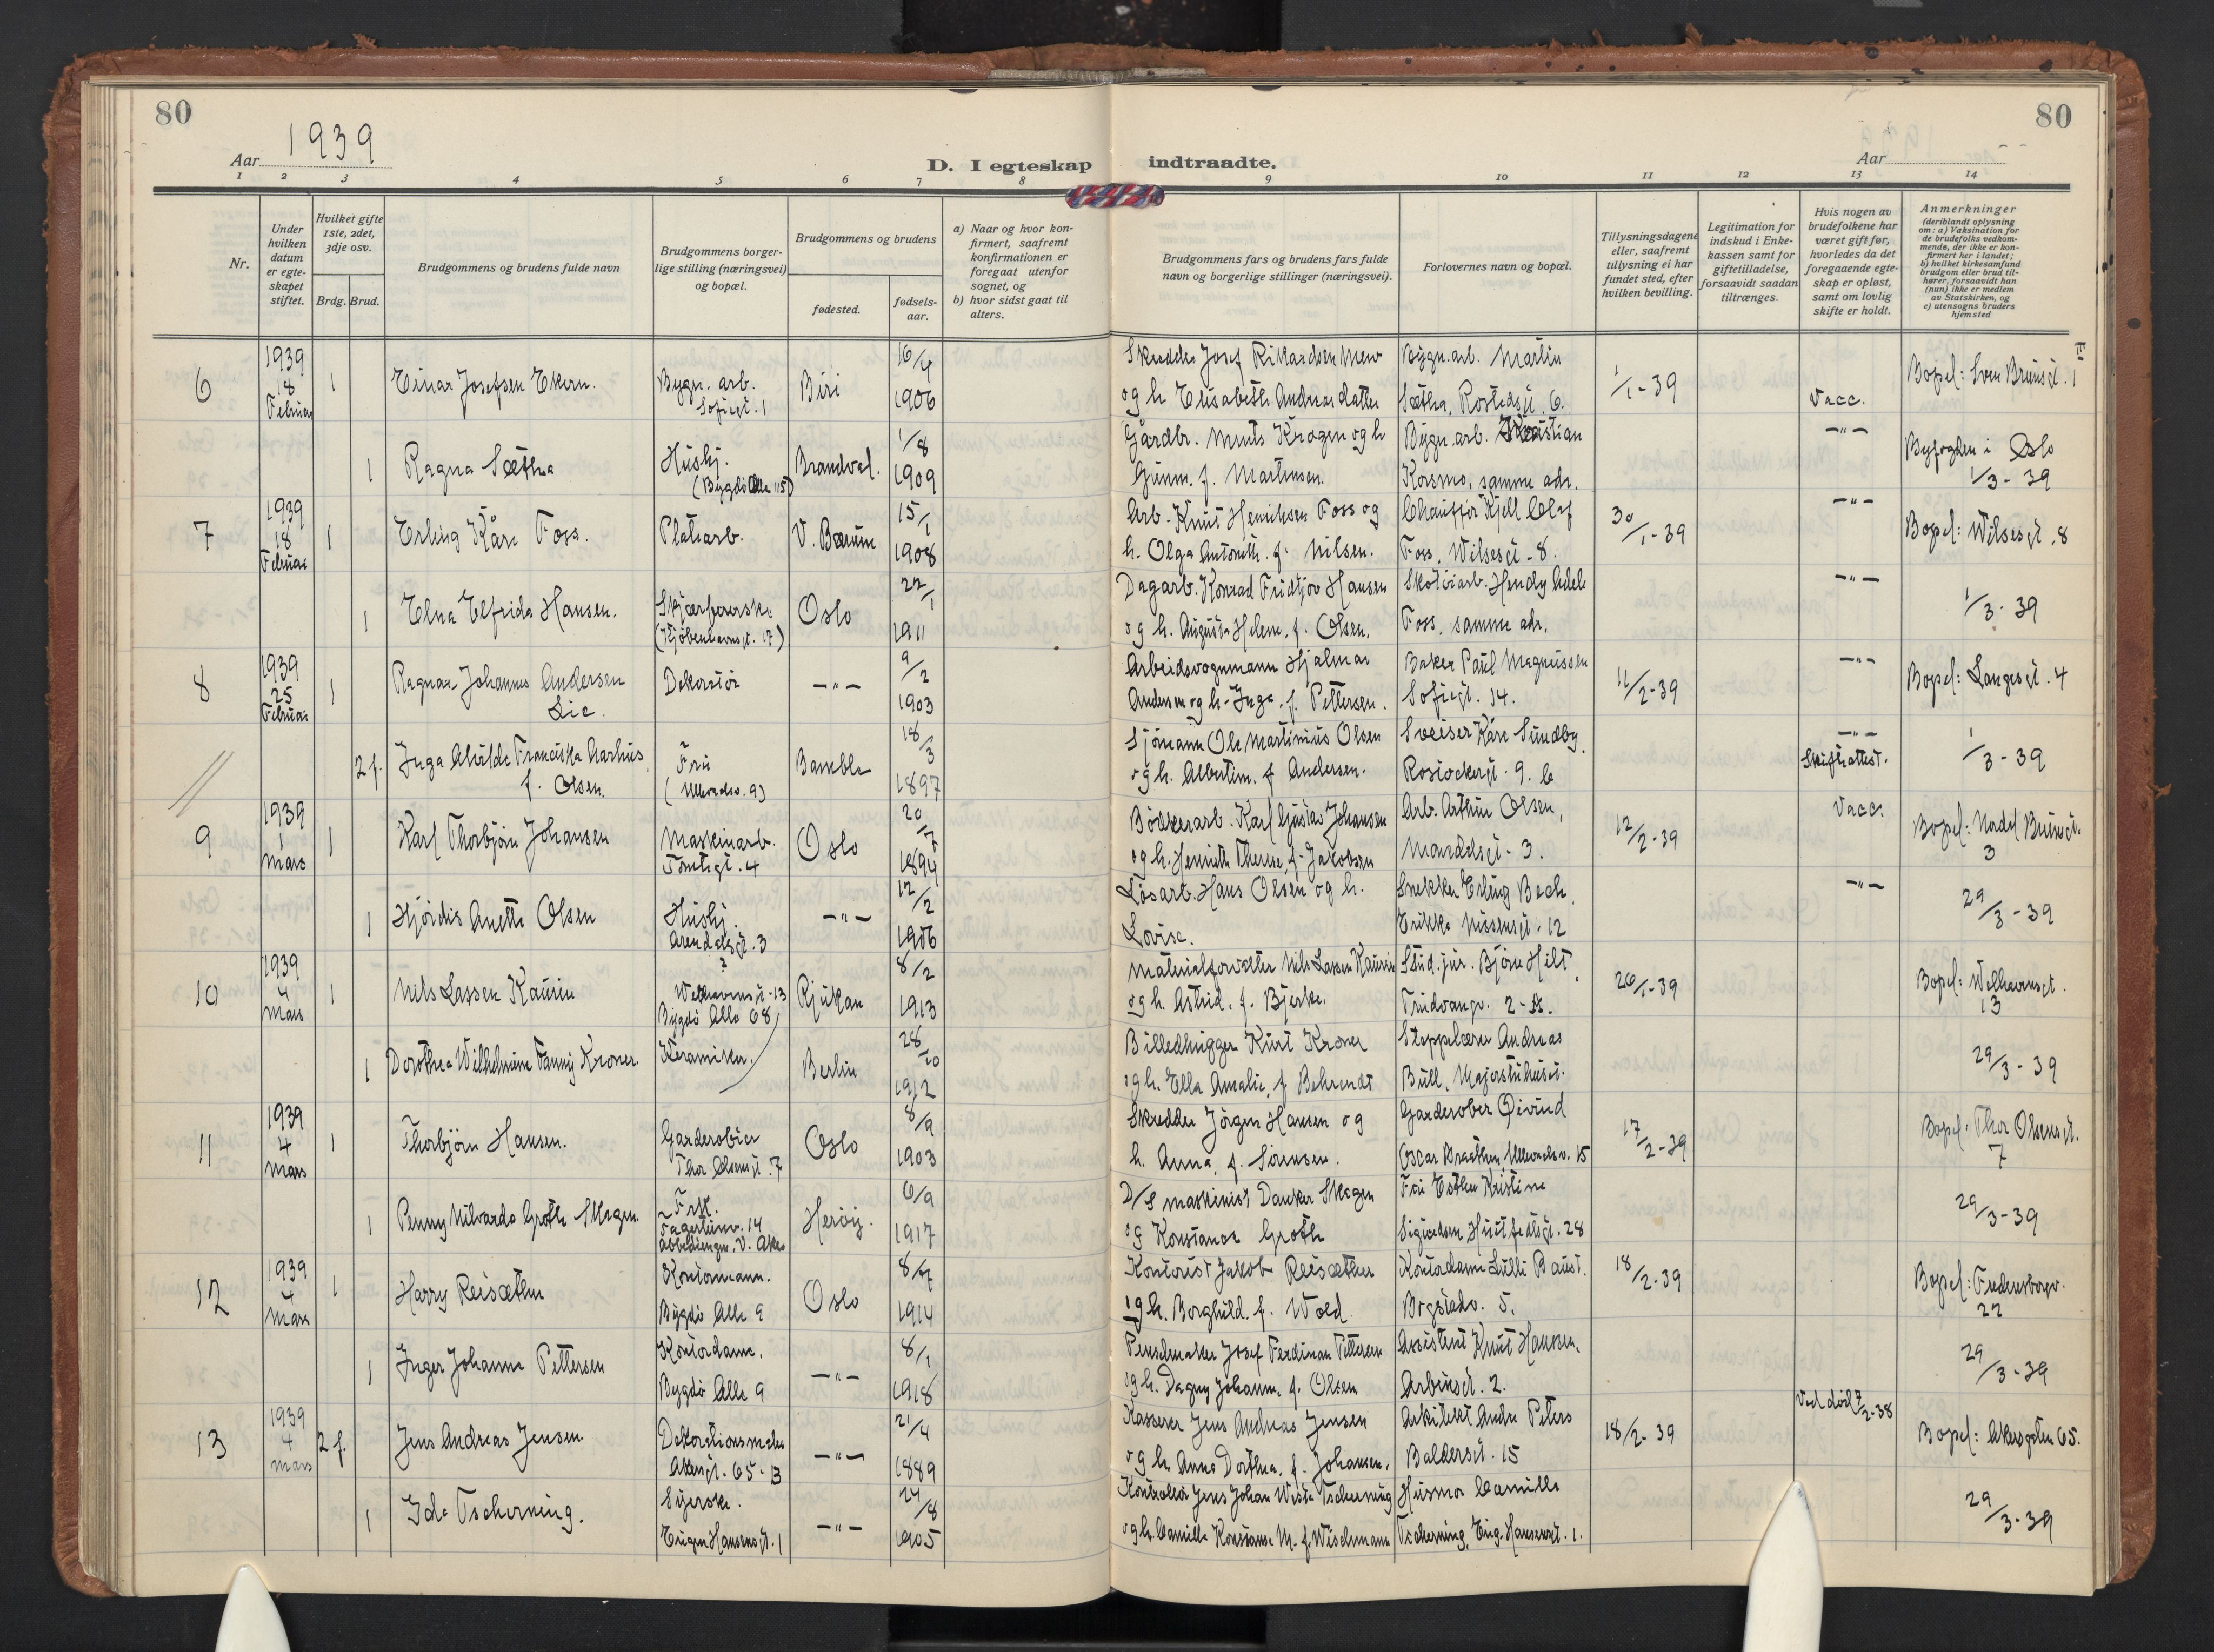 80
80
Aar 1939
D. I egteskap indtraadte.
Aar
1 2 3 4 5 6 7 8 9 10 11 12 13 14
Nr.
Under hvilken datum er egteskapet stiftet.
Hvilket gifte 1ste, 2det, 3dje osv.
Brdg. Brud.
Brudgommens og brudens fulde navn
Brudgommens borgerlige stilling (næringsvei) og bopæl.
Brudgommens og brudens
fødested.
fødselsaar.
a) Naar og hvor konfirmert, saafremt konfirmationen er foregaat utenfor sognet, og
b) hvor sidst gaat til alters.
Brudgommens fars og brudens fars fulde navn og borgerlige stillinger (næringsvei).
Forlovernes navn og bopæl.
Tillysningsdagene eller, saafremt tillysning ei har fundet sted, efter hvilken bevilling.
Legitimation for indskud i Enkekassen samt for giftetilladelse, forsaavidt saadan tiltrænges.
Hvis nogen av brudefolkene har været gift før, hvorledes da det foregaaende egteskap er opløst, samt om lovlig skifte er holdt.
Anmerkninger
(deriblandt oplysning om: a) Vaksination for de brudefolks vedkommende, der ikke er konfirmert her i landet; b) hvilket kirkesamfund brudgom eller brud tilhører, forsaavidt han (hun) ikke er medlem av Statskirken, og c) utensogns bruders hjemsted
6 1939 18 Februar 1 Einar Josefsen Ekern. Bygn. arb. Sofiegt. 1 Biri 16/4 1906
Skredder Josef Rikardsen
og h. Elisabeth Andreasdatter
Bygn. arb. Martin
Sætha, Rostedsgt. 6.
1/1-39 Vacc. Bopel: Sven Brunsgt. 1
1 Ragna Sætha Hushj. (Bygdö Alle 115) Brandval. 1/8 1909
Gårdbr. Ments Krogen og h
Gunm. f. Martinsen.
Bygn. arb. Kristian
Korsmo, samme adr.
-"- Byfogden i Oslo 1/3-39
7 1939 18 Februar 1 Erling Kåre Foss. Platearb. V. Bærum 15/1 1908
Arb. Knut Henriksen Foss og
h. Olga Antonette f. Nilsen.
Chauffør Kjell Olaf
Foss, Wilsesgt. 8.
30/1-39 -"- Bopel: Wilsesgt. 8
1 Elna Elfrida Hansen. (Kjöbenhavnsgt. 17) Oslo 22/1 1911
Dagarb. Konrad Fridtjov Hansen
og h. Augusta Helene, f. Olsen.
Skotöiarb. Hendy Adele
Foss, samme adr.
-"- 1/3-39
8 1939 25 Februar 1 Ragnar Johannes Andersen Lie. Dekoratör -"- 9/2 1903
Arbeidsvognmann Hjalmar
Andersen og h. Inga, f. Pettersen.
Baker Paul Magnussen
Sofiegt. 14.
11/2-39 -"- Bopel: Langesgt. 4
2 f. Inga Alvilde Franciska Aarhus, f. Olsen. Frü (Ullevalsv. 9) Bamble 18/3 1897
Sjömann Ole Martinius Olsen
og h. Albertine f. Andersen.
Sveiser Kåre Sundby
Rostockergt. 9. b
-"- Skifteattest. 1/3-39
9 1939 1 Mars 1 Karl Thorbjörn Johansen Maskinarb. Tomtegt. 4 Oslo 20/7 1894
Bödkerarb. Karl Gustav Johansen
og h. Henriette Therese, f. Jakobsen
Arb. Arthur Olsen,
12/2-39 Vacc. Bopel: Nordal Brunsgt. 3
1 Hjördis Anette Olsen Hushj. Arendalsgt. 3 -"- 12/2 1906
Løsarb. Hans Olsen og h.
Lovise.
Snekker Erling Bech,
Erikke Nissensgt. 12
-"- 29/3-39
10 1939 4 Mars 1 Nils Lassen Kaurin ? Welhavensgt. 13 Bygdö Alle 68 Rjukan 8/2 1913
Materialforvalter Nils Lassen Kaurin
og h. Astrid, f. Bjerke.
Stud. jur. Björn Hilt,
Tridvangv. 2-A.
26/1-39 Bopel: Welhavensgt. 13
1 Dorothea Wilhelmine Fanny Kroner. Keramiker. Berlin 28/10 1912
Billedhugger Kurt Kroner
og h. Ella Amalie, f. Behrendt
Steppelærer Andreas
Bull, Majorstuhuset.
29/3-39
11 1939 4 Mars 1 Thorbjörn Hansen. Garderobier Thor Olsensgt. 7 Oslo 8/9 1903
Skredder Jörgen Hansen og
h. Anna, f. Sörensen.
Garderober Öivind
Oscar Braathen, Ullevalsv. 15
17/2-39 Bopel: Thor Olsensgt. 7
1 Penny Nilvarda Groth Skogen. Frk. Fagertunv. 14 V. Aker Heröy. 6/9 1917
D/S maskinist Danker Skogen
og Konstanse Groth
Frü Esther Kristine
Sigurdsen, Huitfeldtsgt. 28
29/3-39
12 1939 4 Mars 1 Harry Reisæther Kontormann. Bygdö Alle 9 Oslo 8/7 1914
Kontorist Jakob Reisæther
og h. Borghild, f. Wold.
Kontordame Lulli Baust.
Bogstadv. 5.
18/2-39 Bopel: Fredensborgv. 22
1 Inger Johanne Pettersen Kontordame. Bygdö Alle 9 -"- 8/1 1918
Penselmaker Josef Ferdinan Pettersen
og h. Dagny Johanne, f. Olsen
Assistent Knut Hansen,
Arbinsgt. 2.
29/3-39
13 1939 4 Mars 2 f. Jens Andreas Jensen. Dekorationsmaler Akersgt. 65-B -"- 21/4 1889
Kasserer Jens Andreas Jensen
og h. Anna Dorthea, f. Johansen.
Arkitekt Andr. Peters
Baldersgt. 15
18/2-39 Ved död 7/2-38 Bopel: Akersgaten 65.
1 Ida Tscherning. Syerske. Eugen Hansensgt. 1 -"- 24/8 1905
Kontrollör Jens Johan Tscherning
og h. Camilla Konstanse M. f. Wischmann
Husmor Camilla
Tscherning, Eug. Hansensgt. 1.
29/3-39